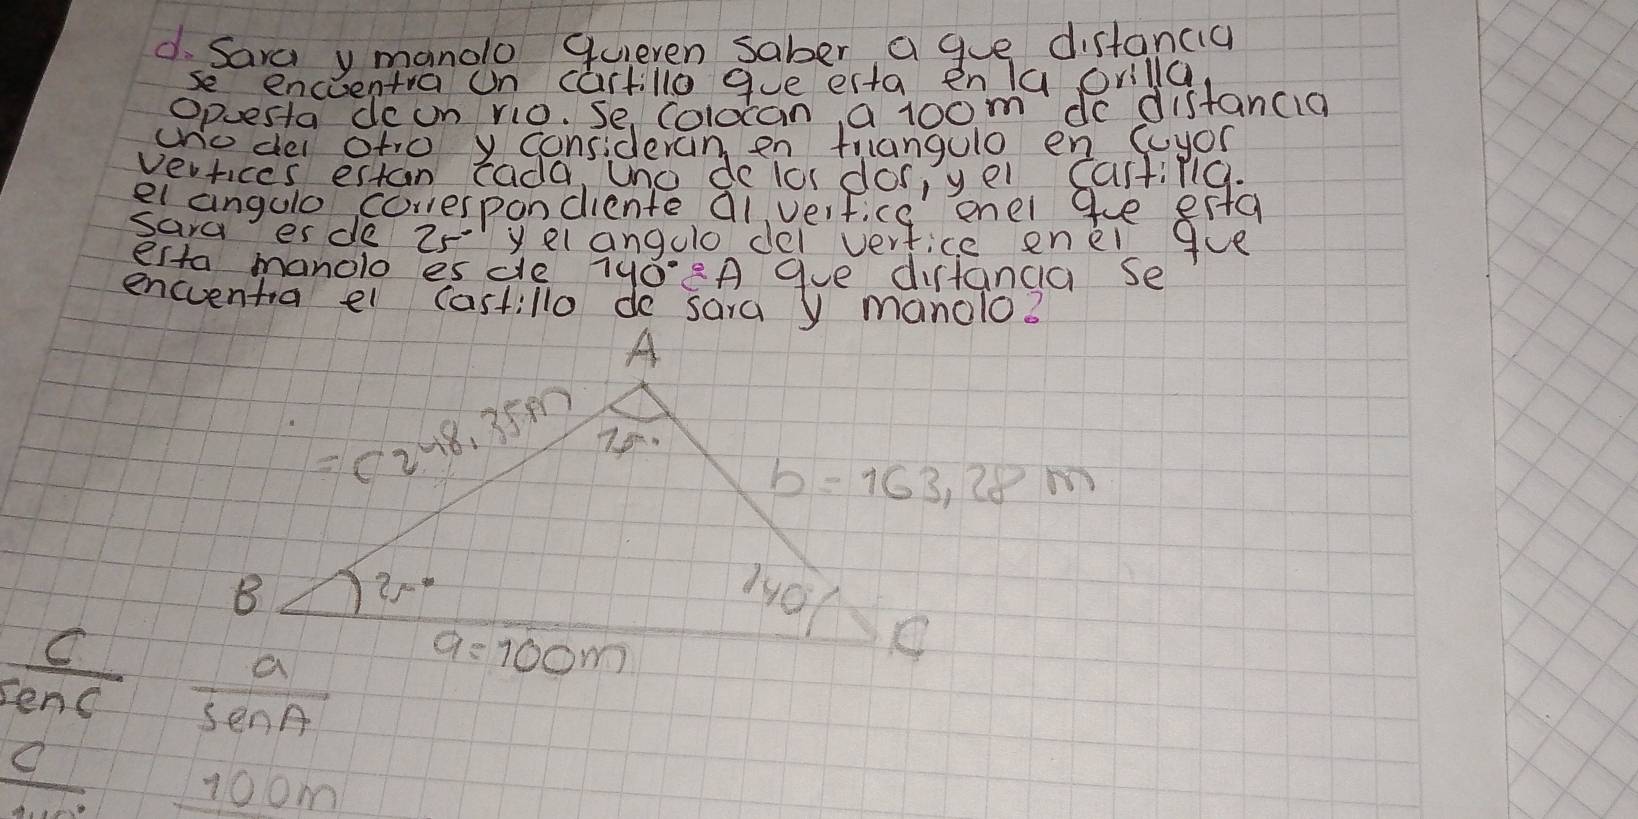 d. Sara y manolo quieren saber a que distancia
se encuentra un castillo que esta en la orilla
opuesta de un rio. se colocan a 100m de distancia
uno del otro y consideran en triangulo en cuyos
vertices estan cada uno de los dos, y el castillo.
el angulo correspondiente al vertice en el que esta
sara es de 25° y el angulo del vertice en el que
esta manolo es de 140° ¿A que distancia se
encuentra el castillo de sara y manolo?
A
= c 248,35m
15°
b = 163,28 m
B
25°
140°
C
a = 100m
c a
sen C sen A
c 100m